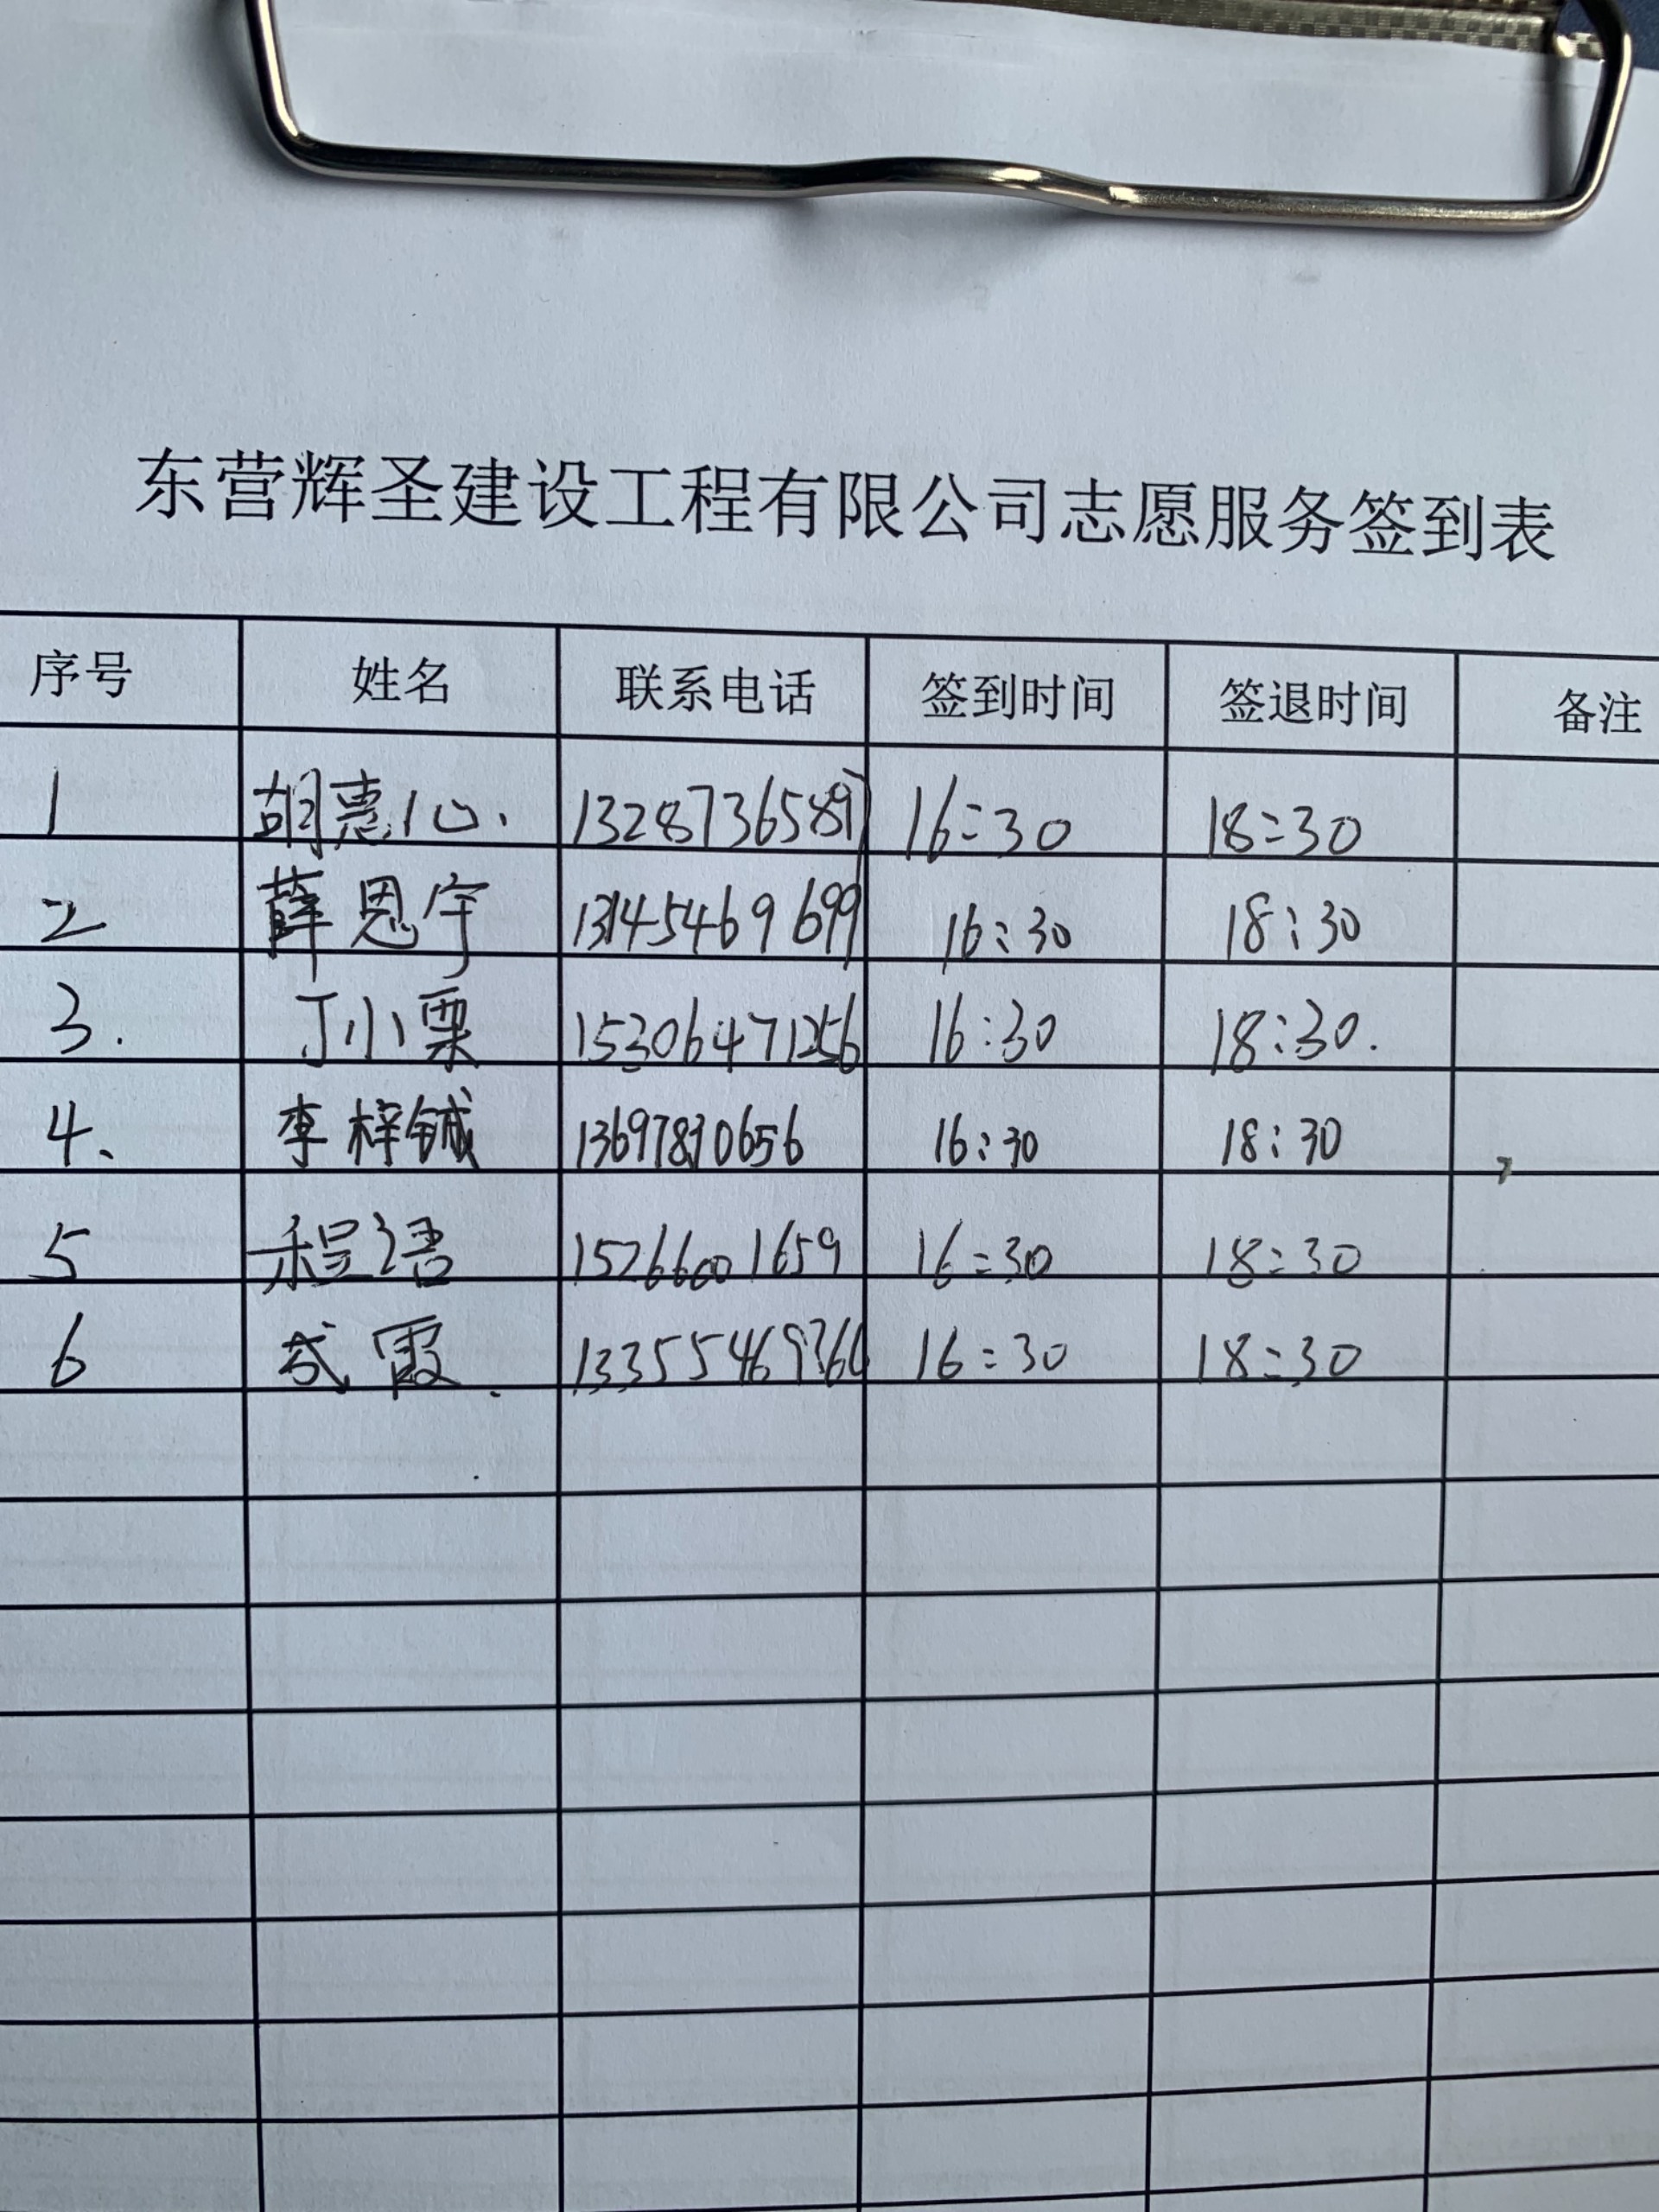 东营辉圣建设工程有限公司志愿服务签到表
序号 姓名 联系电话 签到时间 签退时间 备注
1 胡惠心. 13287365897 16:30 18:30
2 薛恩宇 13145469699 16:30 18:30
3. 丁小栗 15306471256 16:30 18:30.
4、 李梓铖 13697890656 16:30 18:30
5 程语 15266001659 16:30 18:30
6 武霞. 13355469366 16:30 18:30